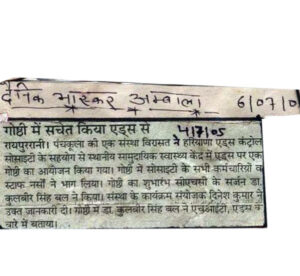 दैनिक भास्कर अम्बाला 6/07/0
गोष्ठी में सचेत किया एड्स से
4/7/05
रायपुररानी। पंचकूला की एक संस्था विरासत ने हरियाणा एड्स कंट्रोल
सोसाइटी के सहयोग से स्थानीय सामुदायिक स्वास्थ्य केंद्र में एड्स पर एक
गोष्ठी का आयोजन किया गया। गोष्ठी में सोसाइटी के सभी कर्मचारियों व
स्टाफ नर्सों ने भाग लिया। गोष्ठी का शुभारंभ सीएचसी के सर्जन डा.
कुलबीर सिंह बल ने किया। संस्था के कार्यक्रम संयोजक दिनेश कुमार ने
उक्त जानकारी दी। गोष्ठी में डा. कुलबीर सिंह बल ने एचआईटी, एड्स के
बारे में बताया।